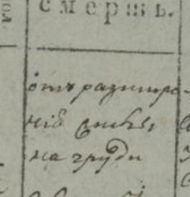 смерть.
отъ разшире-
нія синкы
на груди